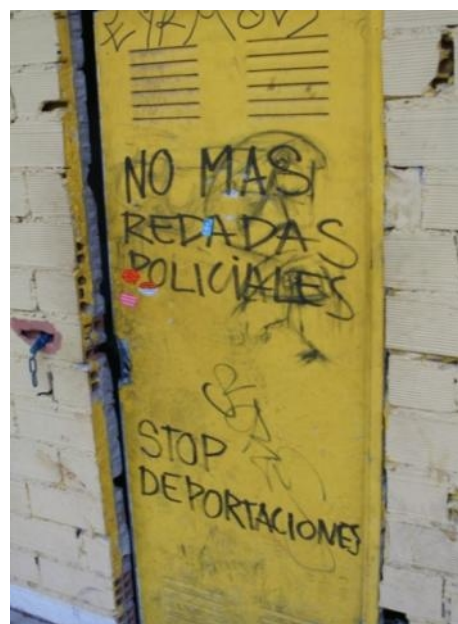 NO MAS
REDADAS
POLICIALES
STOP
DEPORTACIONES